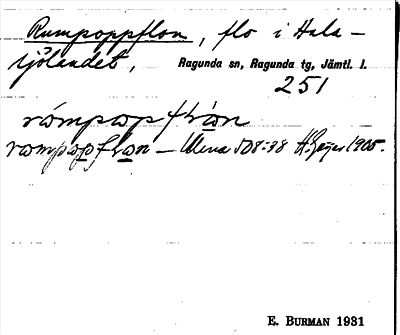 Rumpoppflon, flo i Hala-
sjölandet, Ragunda sn, Ragunda tg, Jämtl. l.
251
råmpopflån
rompopflon – Ulena 508:38 H. Geijer 1905.
E. BURMAN 1931